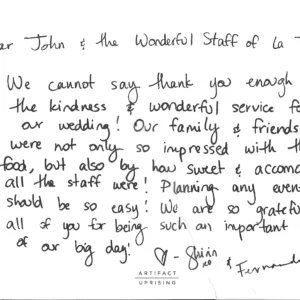 er John & the Wonderful Staff of La
We cannot say thank you enough
the kindness & wonderful service fo
our wedding! Our family & friends
were not only so impressed with th
food, but also by how sweet & accomo
all the staff were! Planning any even
should be so easy! We are so gratefu
all of you for being such an important
of our big day! ♡ - 
xo & Fernand
ARTIFACT
UPRISING